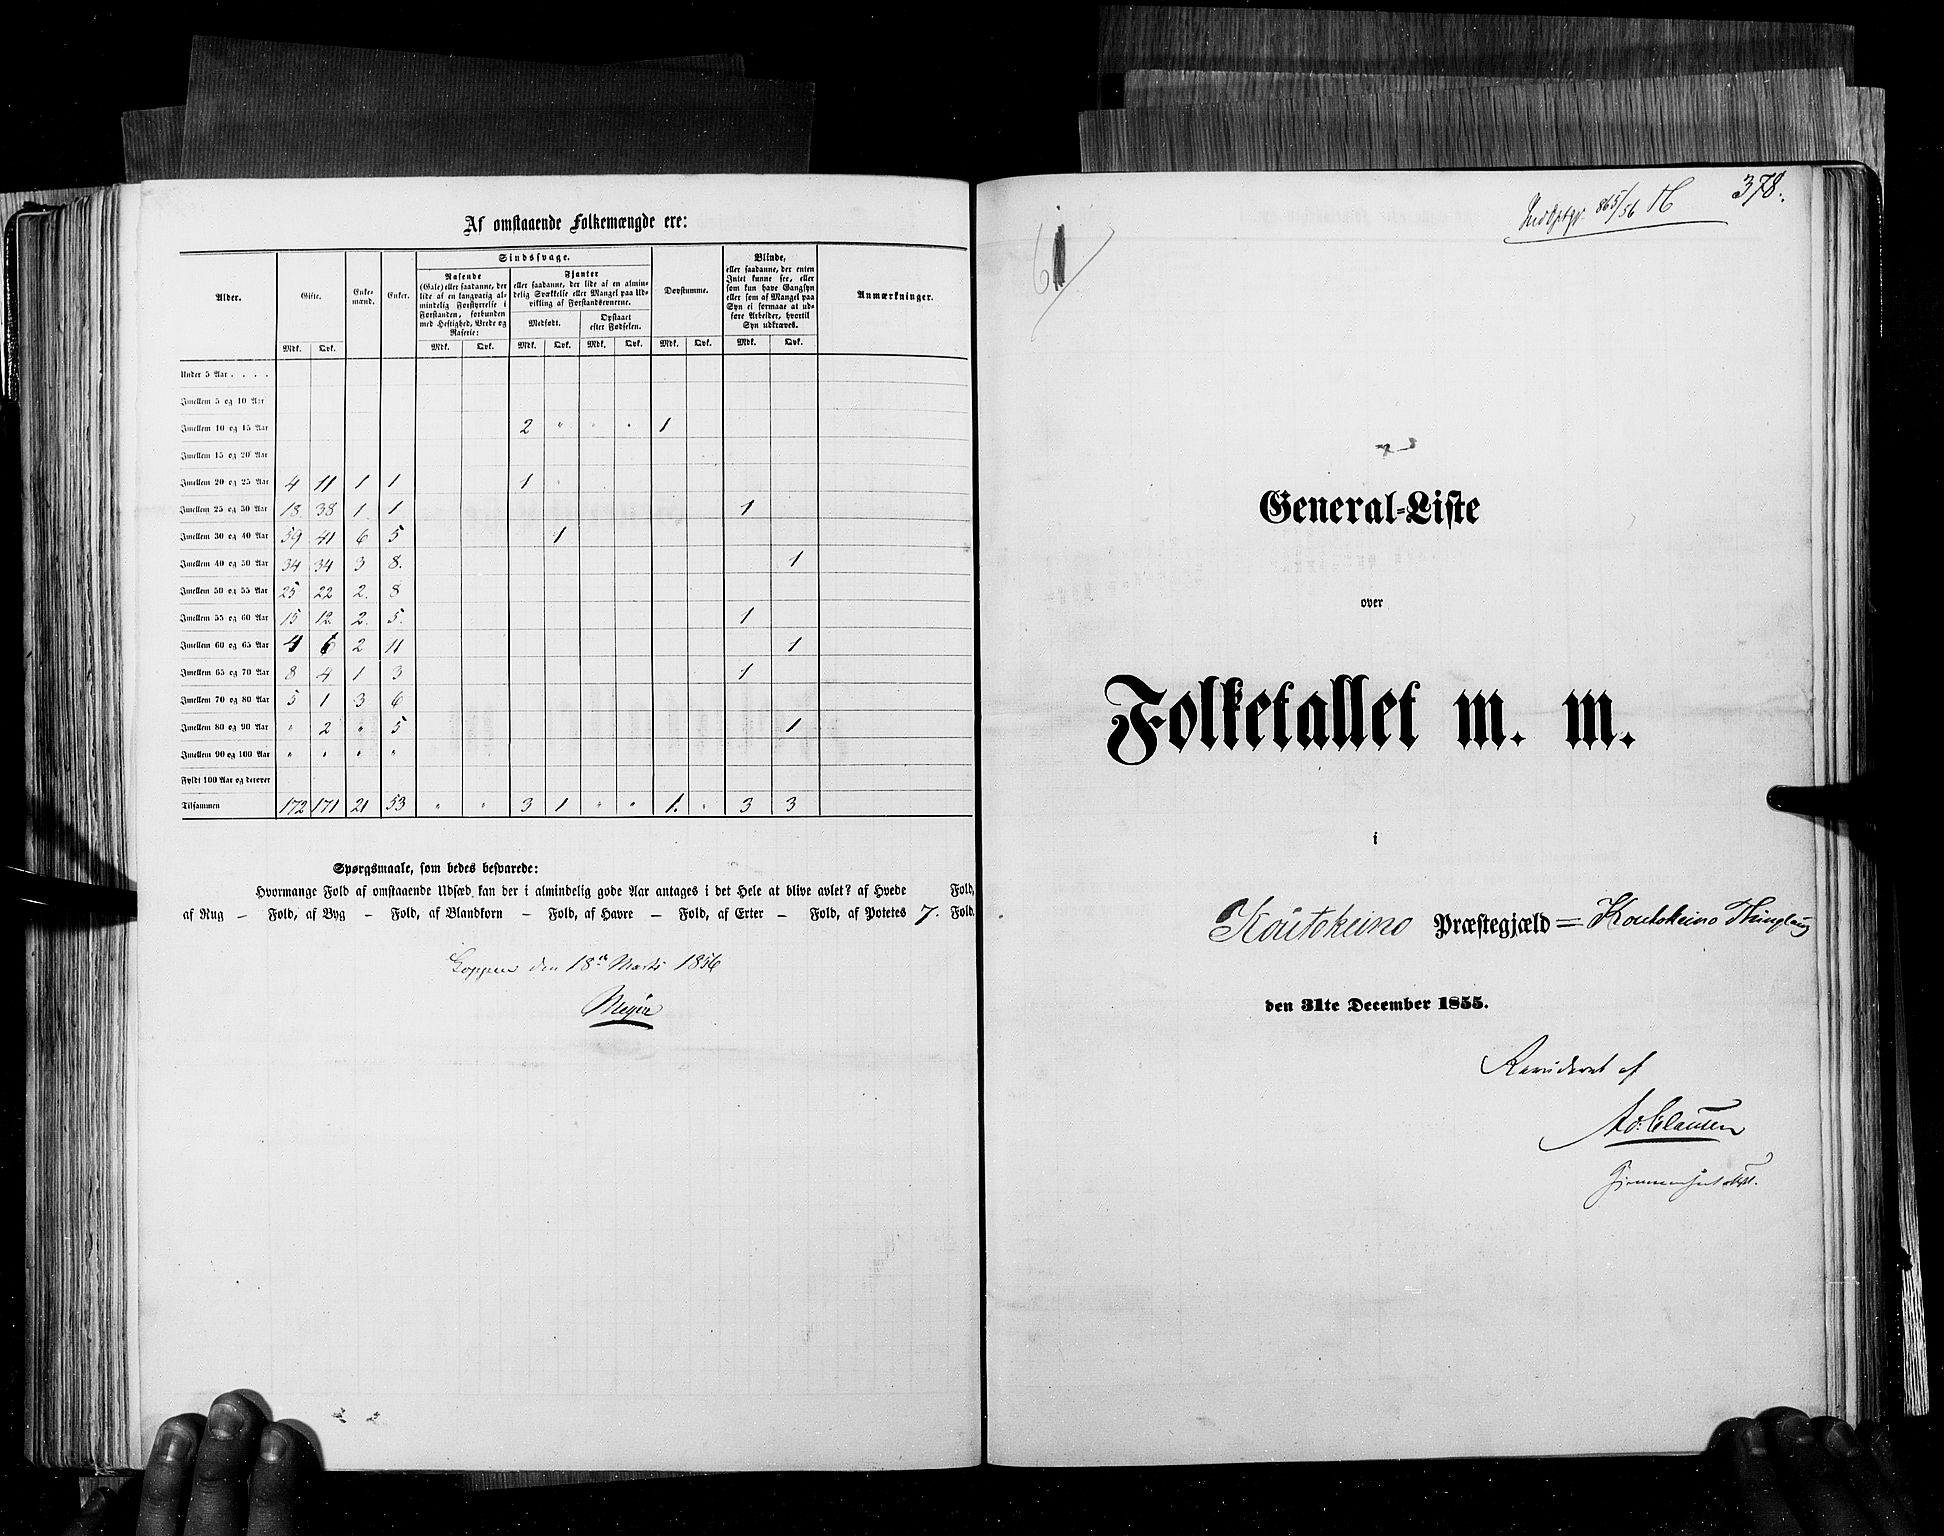 Af omstaaende Folkemængde ere:
Alder. Gifte. Enke-mænd. Enker. Sindssvage. Døvstumme. Blinde, Anmærkninger.
Rasende (Gale) eller saadanne, der lide af en langvarig almindelig Forstyrrelse i Forstanden, forbunden med Heftighed, Vrede og Raserie:
Fjanter eller saadanne, der lide af en almindelig Svækkelse eller Mangel paa Udvikling af Forstandsevnerne.
eller saadanne, der enten Intet kunne see, eller som kun have Gangsyn eller som af Mangel paa Syn ei formaae at udføre Arbeider, hvortil Syn udkræves.
Medfødt. Opstaaet efter Fødselen.
Mdk. Qvk. Mdk. Qvk. Mdk. Qvk. Mdk. Qvk. Mdk. Qvk. Mdk. Qvk.
Under 5 Aar . . . .
Imellem 5 og 10 Aar
Imellem 10 og 15 Aar 2 " " " 1
Imellem 15 og 20 Aar
Imellem 20 og 25 Aar 4 11 1 1 1
Imellem 25 og 30 Aar 18 38 1 1 1
Imellem 30 og 40 Aar 59 41 6 5 1
Imellem 40 og 50 Aar 34 34 3 8. 1
Imellem 50 og 55 Aar 25 22 2. 8
Imellem 55 og 60 Aar 15 12 2. 5. 1
Imellem 60 og 65 Aar 4 6 2 11 1
Imellem 65 og 70 Aar 8 4 1 3 1
Imellem 70 og 80 Aar 5 1 3 6
Imellem 80 og 90 Aar " 2 " 5 1
Imellem 90 og 100 Aar " " " "
Fyldt 100 Aar og derover
Tilsammen 172 171 21 53 " " 3 1 " " 1. " 3 3
Spørgsmaale, som bedes besvarede:
Hvormange Fold af omstaaende Udsæd kan der i almindelig gode Aar antages i det Hele at blive avlet? af Hvede Fold,
af Rug – Fold, af Byg – Fold, af Blandkorn – Fold, af Havre – Fold, af Erter – Fold, af Potetes 7. Fold.
den 18de Marts 1856
865/56
378.
61
General-Liste
over
Folketallet m. m.
i
Koutokeino Præstegjæld = Koutokeino Thinglaug
den 31te December 1855.
Revideret af
Ad. Clausen